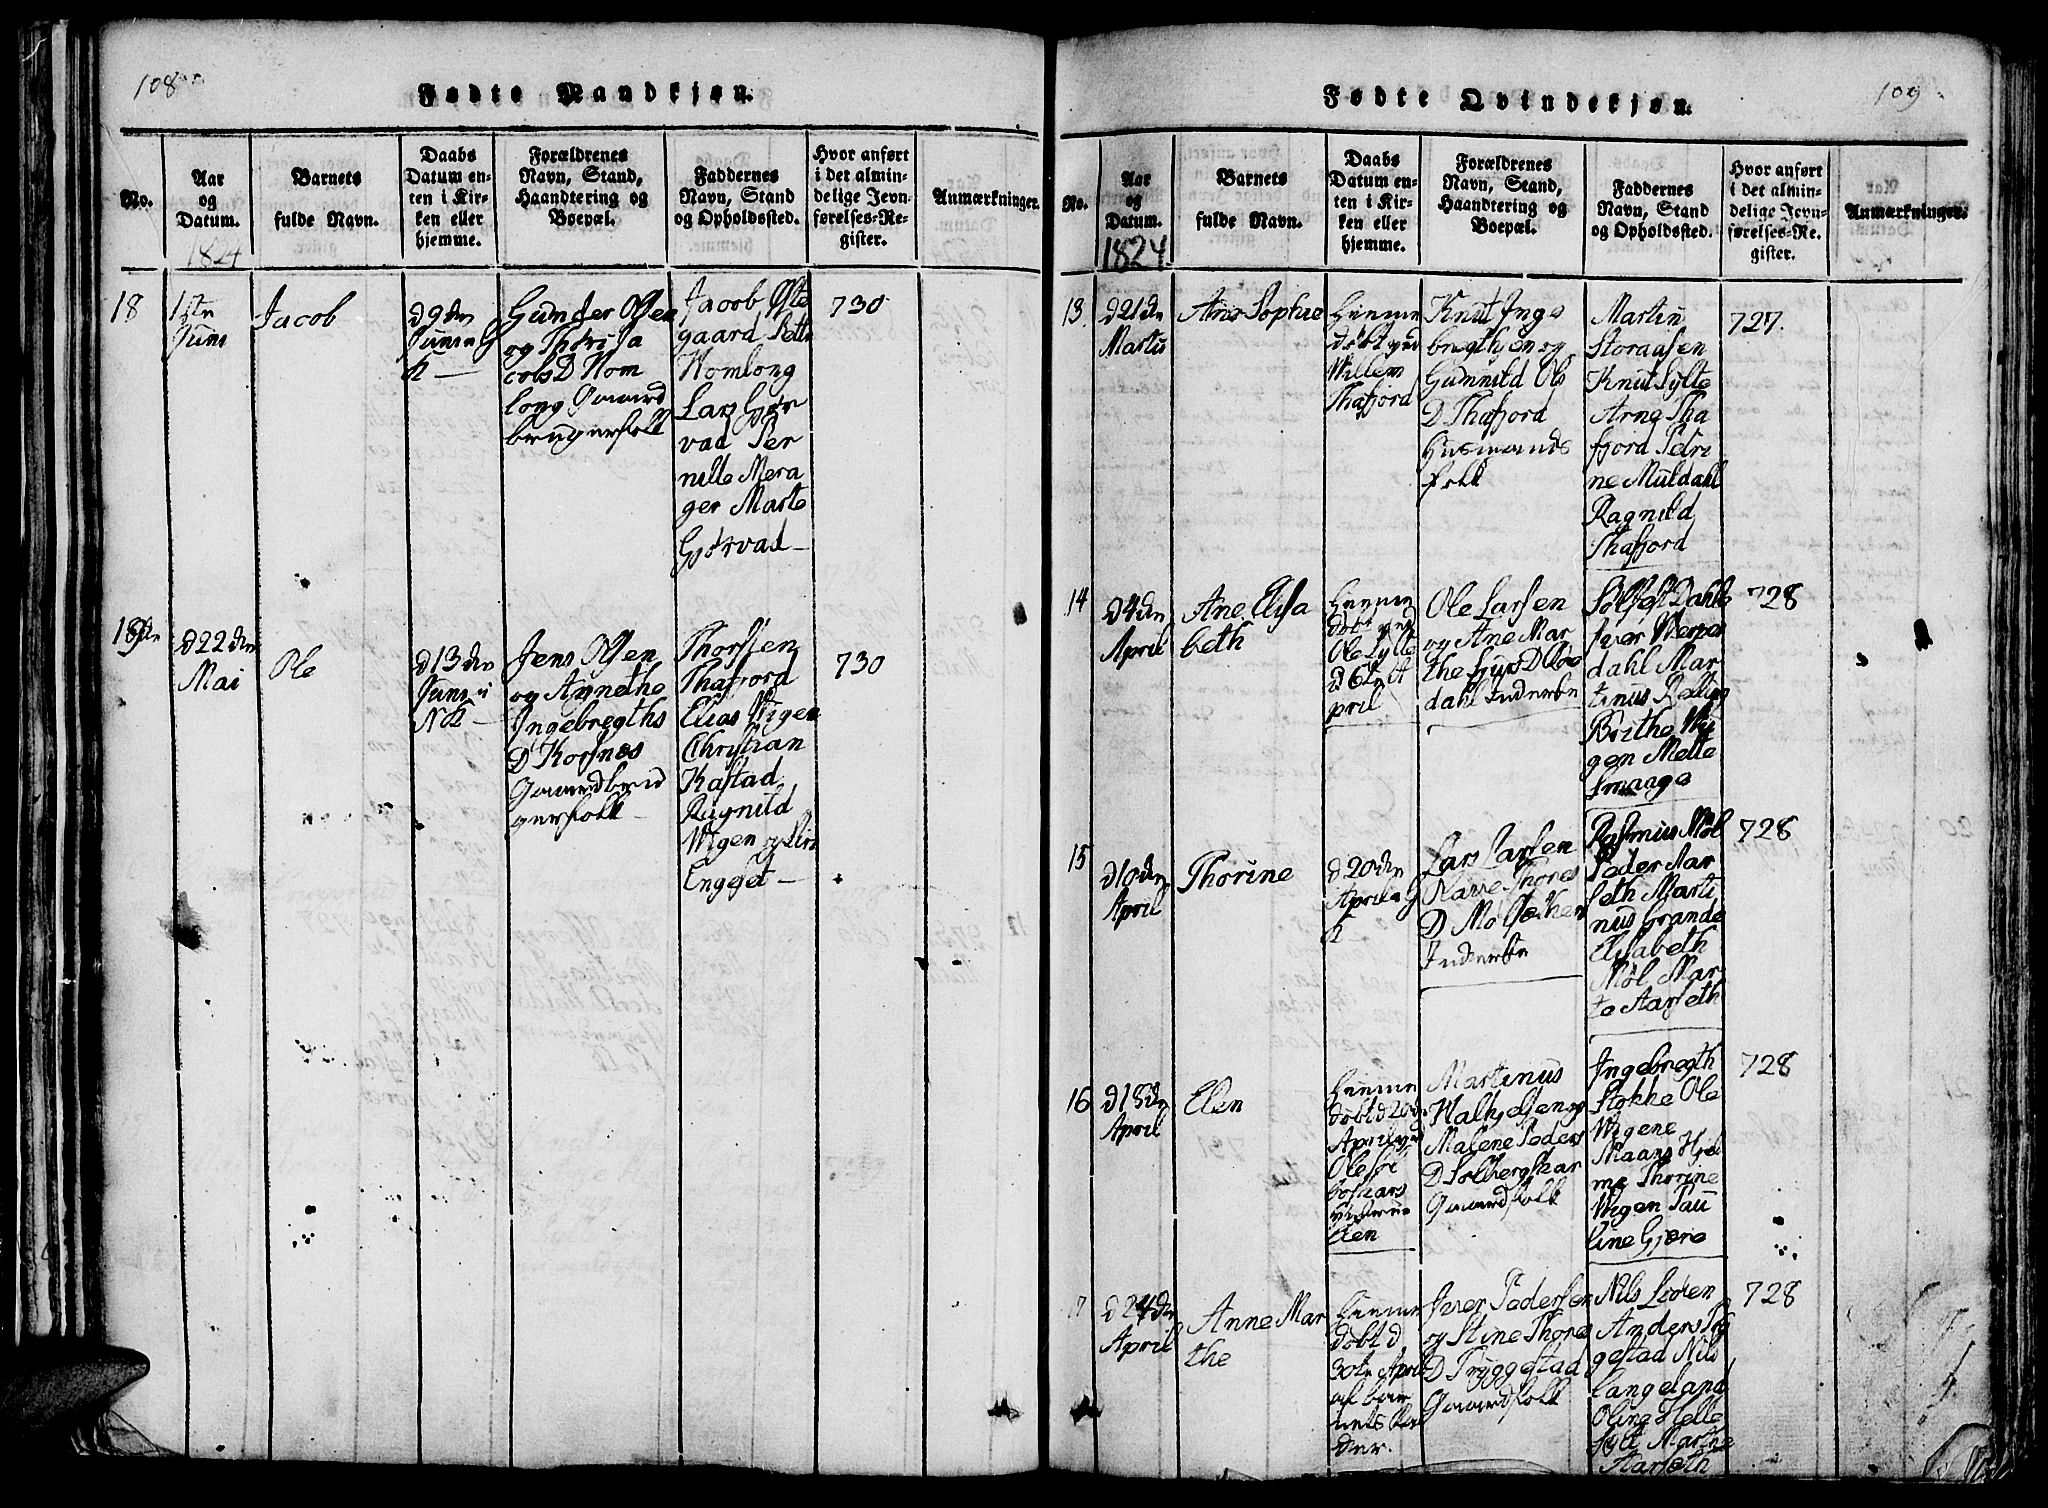 108
Fødte Mandkjøn.
No.
Aar
og
Datum.
1824
Barnets
fulde Navn.
Daabs
Datum en-
ten i Kir-
ken eller
hjemme.
Forældrenes
Navn, Stand,
Haandtering og
Boepæl.
Faddernes
Navn, Stand
og Opholdssted.
Hvor anført
i det almin-
delige Jevn-
førelses-Re-
gister.
Anmærkninger.
18
1ste
Juni
Jacob
d 9de
Juni i G
K
Gunder Olsen
og Thori Ja
cobs D Hom
long Gaard
brugerfolk
Jacob Øste
gaard Petter
Homlong
Lars Gjør
vad Per
nille Mera
ger Marte
Gjørvad
730
19de
d 22de
Mai
Ole
d 13de
Juni i
N K
Jens Olsen
og Annethe
Ingebregths
D Korsnæs
Gaardbrú
gerfolk
Thorsten
Thafjord
Elias Wigen
Christian
Kastad
Ragnild
Wigen og Siri
Engeset
730
109
Fødte Qvindekjøn.
No.
Aar
og
Datum.
1824
Barnets
fulde Navn.
Daabs
Datum en-
ten i Kir-
ken eller
hjemme.
Forældrenes
Navn, Stand,
Haandtering og
Boepæl.
Faddernes
Navn, Stand
og Opholdssted.
Hvor anført
i det almin-
delige Jevn-
førelses-Re-
gister.
Anmærkninger.
13
d 21de
Martii
Ane Sophie
hiemme
døbt ved
Willem
Thafjord
Knut Inge
bregthsen og
Gunnild Ols
D Thafjord
Husmands
folk
Martin
Storaasen
Knut Sylte
Arne Tha
fjord Petri
ne Muldahl
Ragnild
Thafjord
727.
14
d 4de
April
Ane Elisa
beth
hiemme
døbt ved
Ole Sylte
d 6te A
pril
Ole Larsen
og Ane Mar
the
dahl Inderste
Sølfest Dahle
Iver Werpes
dahl Mar
tinus Relling
Brithe Wi
gen Mette
Smaage
728
15
d 10de
April
Thorine
d 20de
April i G
K
Lars Larsen
Thores
D Mølsæther
Inderste
Rasmus Møl
Peder Aar
seth Marti
nus Grande
Elisabeth
Møl Mar
te Aarseth
728
16
d 15de
April
Elen
hiemme
døbt d 20de
April ved
Ole
Martinus
Halkjelsen og
Malene Peders
D Solbergskar
Gaardfolk
Ingebregth
Stokke Ole
Wigene
Maans Hjel
me Thorine
Wigen Pau
line Gjære
728
17
d 24de
April
Anne Mar
the
hiemme
døbt d
30te April
af bar
nets Fa
der.
Iver Pedersen
og Stine Thores
D Tryggestad
Gaardfolk
Nils Løden
Anders Try
gestad Nils
Langeland
Oline Helle
Sylt Marthe
Aarseth
728